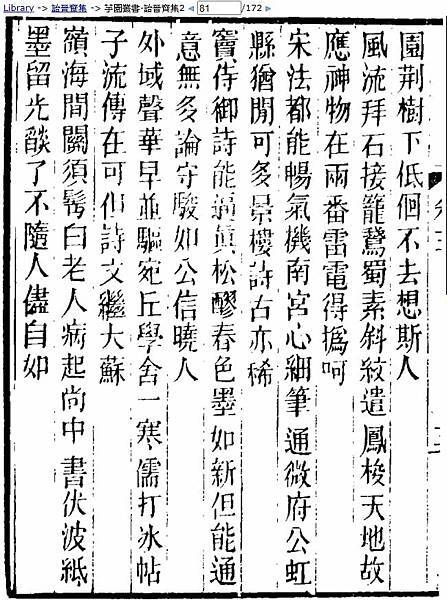 Library -> 詒晉齋集 -> 芋園叢書·詒晉齋集2 ◄ 81 /172 ►
園荆樹下低佪不去想斯人
風流拜石接籠鵞蜀素斜紋遣鳳梭天地故
應神物在兩番雷電得撝呵
宋法都能暢氣機南宮心細筆通微府公虹
縣猶閒可多景樓詩古亦稀
竇侍御詩能逼眞松醪春色墨如新但能通
意無多論守駿如公信曉人
外域聲華早並驅宛丘學舍一寒儒打冰帖
子流傳在可但詩文繼大蘇
嶺海間關須髩白老人病起尚中書伏波紙
墨留光燄了不隨人儘自如